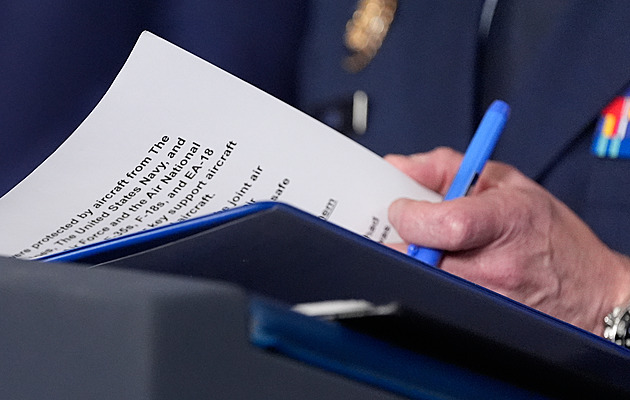 re protected by aircraft from The
es, The United States Navy, and
ir Force and the Air National
-35s, F-18s, and EA-18
key support aircraft
ircraft.
joint air
safe
hem
had
was